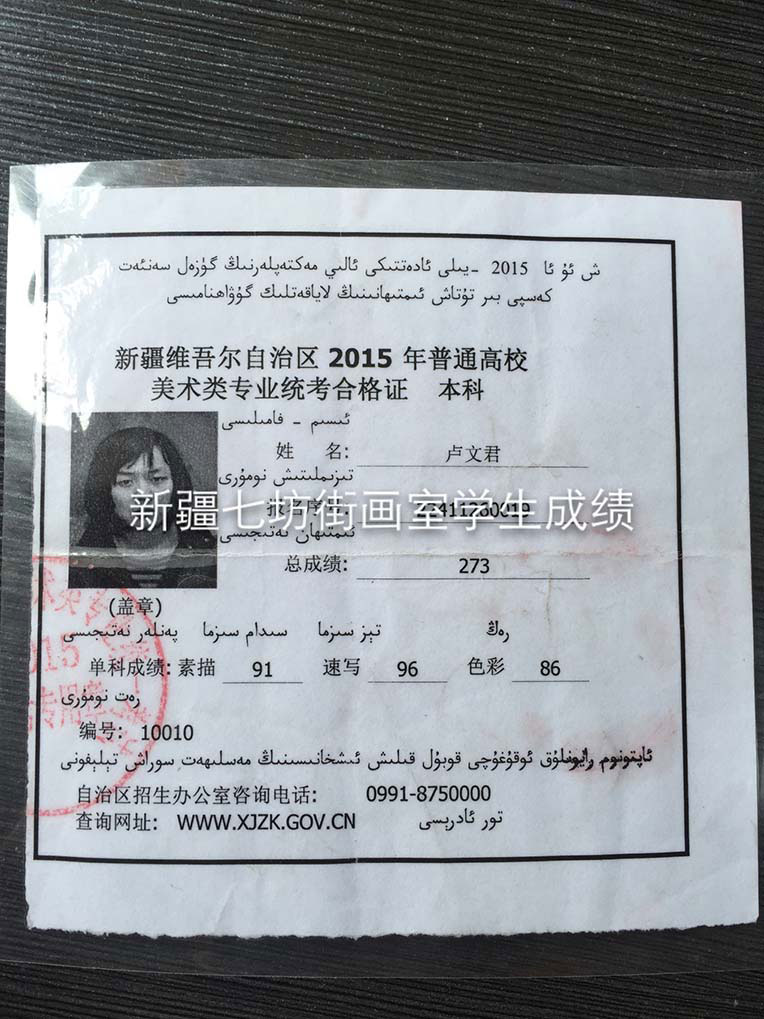 ش ئۇ ئا 2015 -يىلى ئادەتتىكى ئالىي مەكتەپلەرنىڭ گۈزەل سەنئەت
كەسپى بىر تۇتاش ئىمتىھانىنىڭ لاياقەتلىك گۇۋاھنامىسى
新疆维吾尔自治区 2015 年普通高校
美术类专业统考合格证 本科
ئىسىم - فامىلىسى
姓 名: 卢文君
تىزىملىتىش نومۇرى
报名序号:
新疆七坊街画室学生成绩
ئىمتىھان نەتىجىسى
总成绩: 273
(盖章)
پەنلەر نەتىجىسى سىدام سىزما تېز سىزما رەڭ
单科成绩: 素描 91 速写 96 色彩 86
رەت نومۇرى
编号: 10010
ئاپتونوم رايونلۇق ئوقۇغۇچى قوبۇل قىلىش ئىشخانىسىنىڭ مەسلىھەت سوراش تېلېفونى
自治区招生办公室咨询电话: 0991-8750000
查询网址: WWW.XJZK.GOV.CN تور ئادرېسى